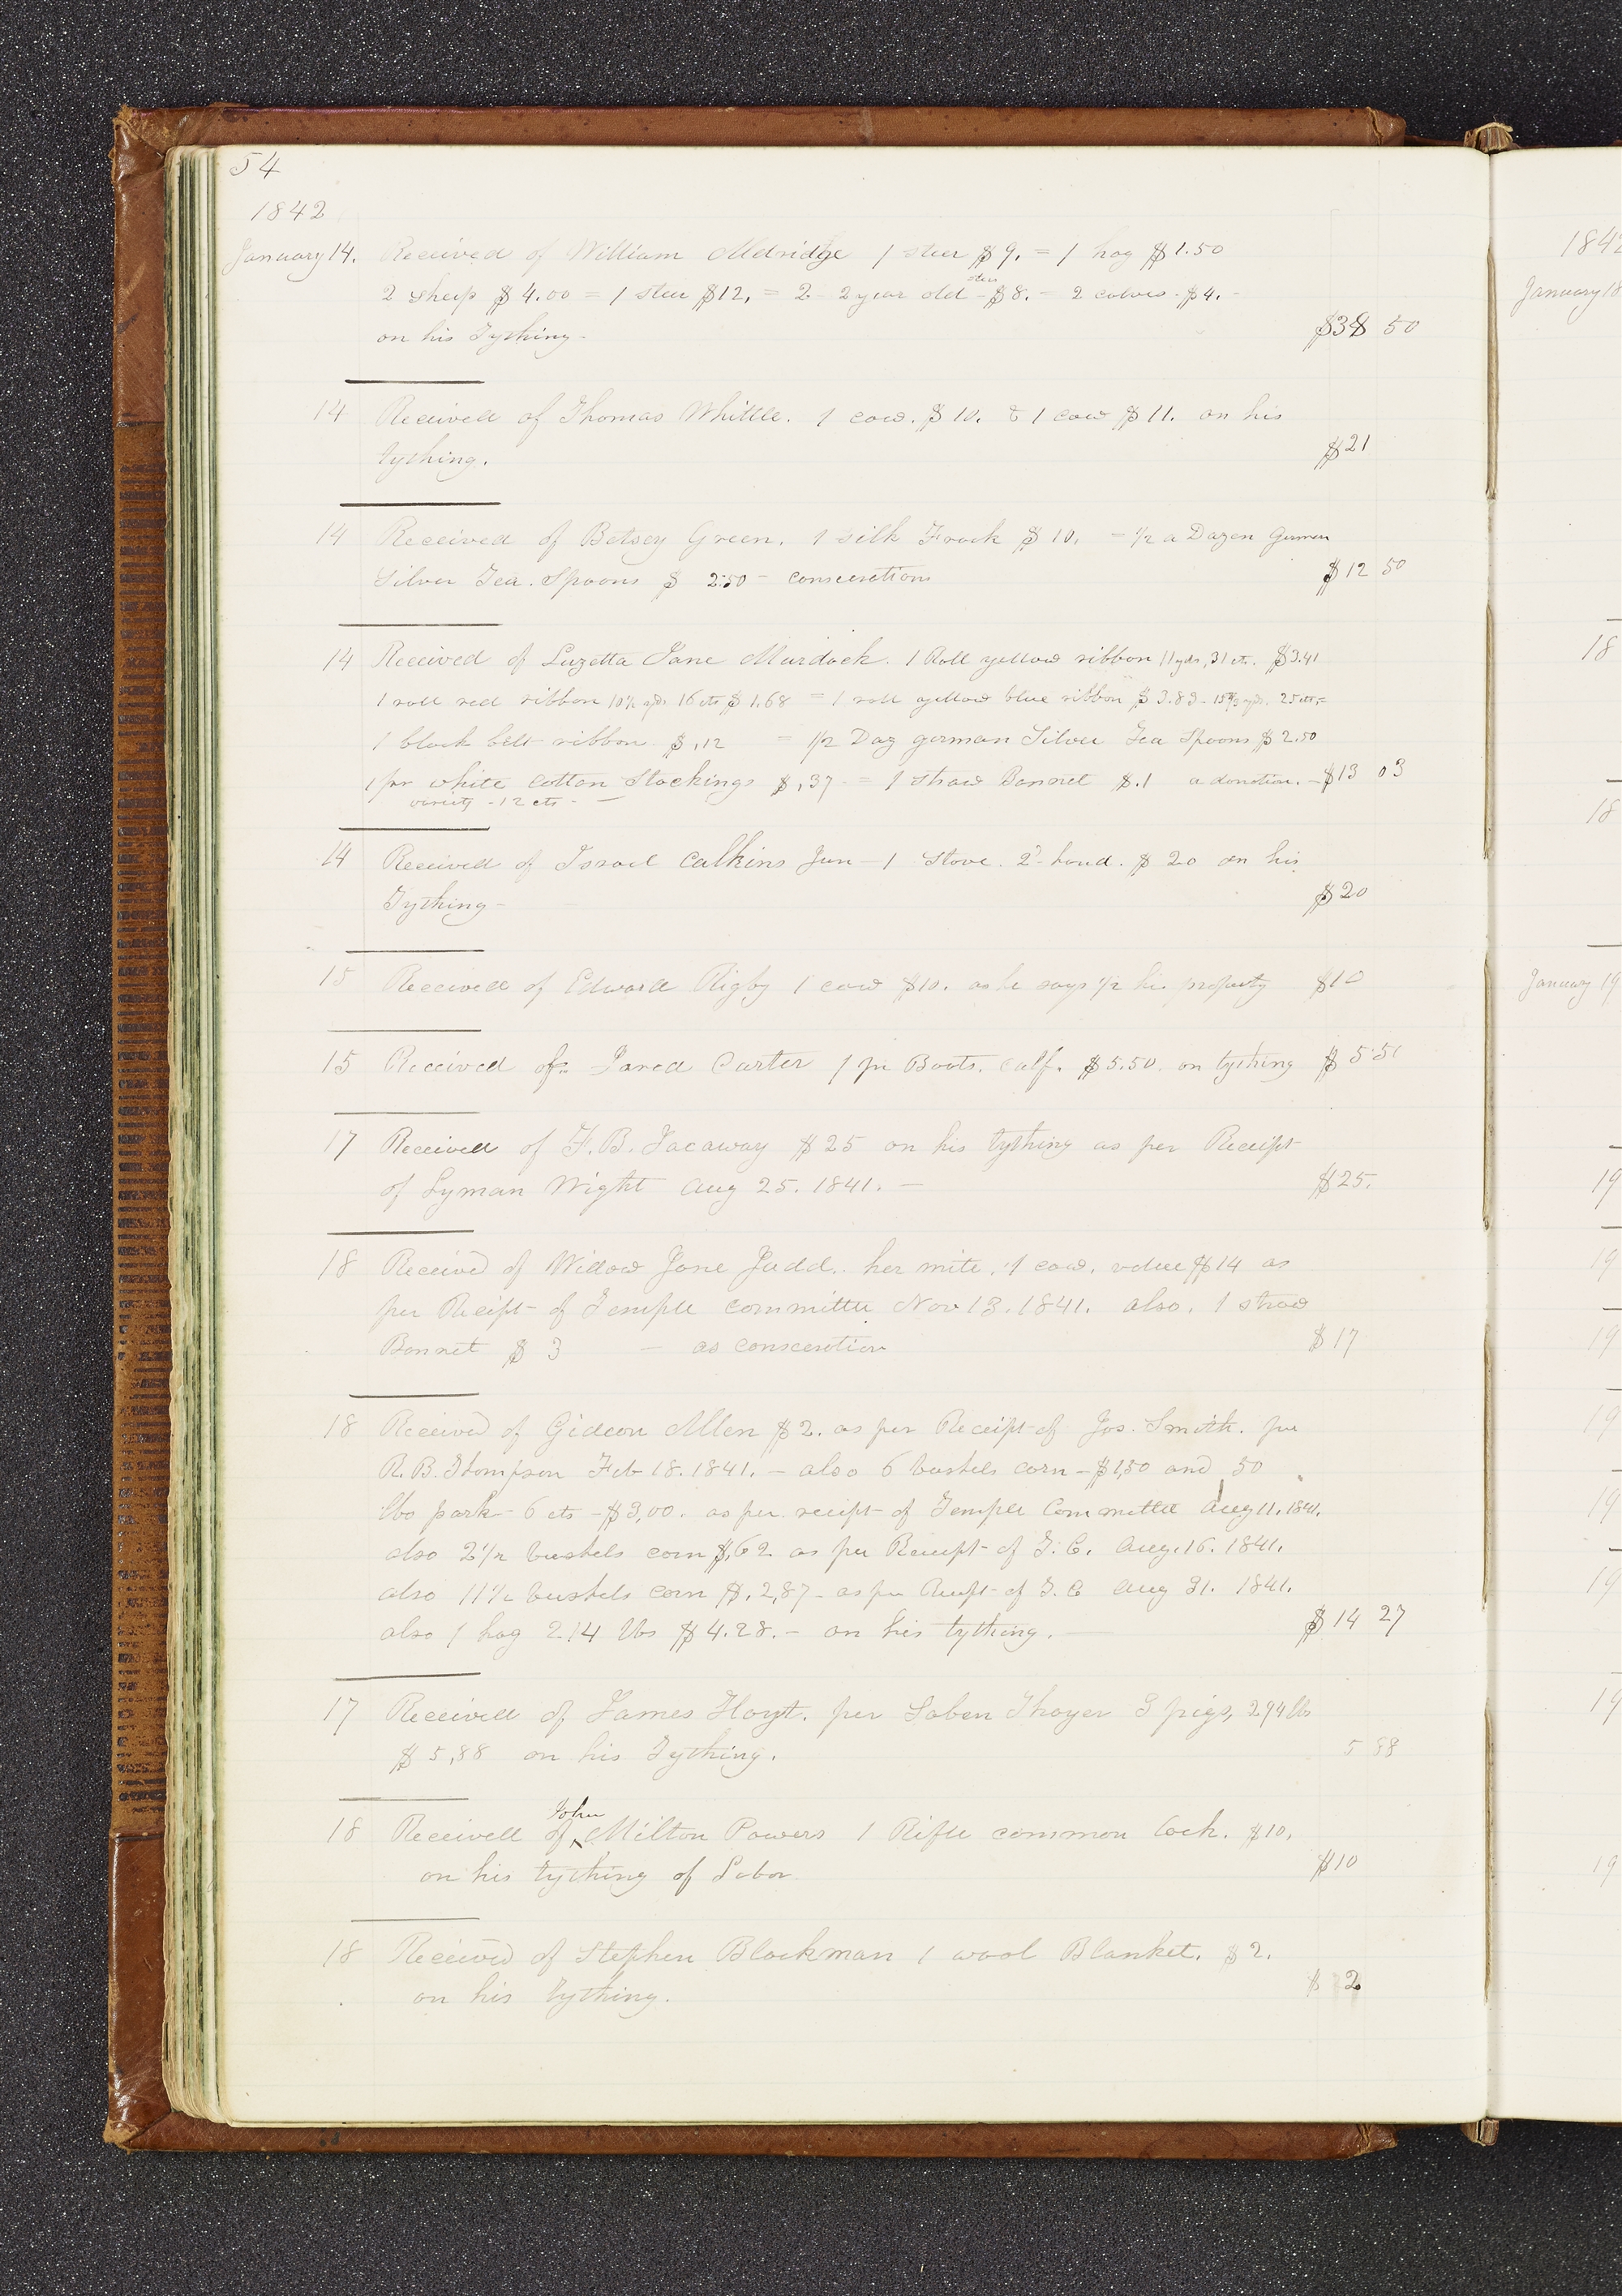 54
1842
January 14. Received of William Aldridge 1 steer $9. = 1 hog $1.50
2 sheep $4.00 = 1 steer $12, = 2 2 year old steers - $8. = 2 calves - $4. -
on his Tything - $38 50
14 Received of Thomas Whittle. 1 cow. $10. & 1 cow $11. on his
tything. $21
14 Received of Betsey Green. 1 silk Frock $10. = 1/2 a Dozen German
Silver Tea. Spoons $ 2.50 - consecration $12 50
14 Received of Luzetta Jane Murdock. 1 Roll yellow ribbon 11 yds, 31 cts. $3.41
1 roll red ribbon 10 1/2 yds 16 cts $1.68 = 1 roll yellow blue ribbon $3.83 - yds. 25 cts =
1 black belt ribbon. $,12 = 1/2 Doz german Silver Tea Spoons $2.50
1 pr white cotton Stockings $,37 - = 1 straw Bonnet $.1 a donation. - $13 03
- 12 cts - -
14 Received of Israel Calkins Jun - 1 Stove. 2d hand. $20 on his
Tything - $20
15 Received of Edward Rigby 1 cow $10. as he says 1/2 his property $10
15 Received of Jared Carter 1 pr Boots. calf. $5.50. on tything $5 50
17 Received of F. B. Jacaway $25 on his tything as per Receipt
of Lyman Wight Aug 25. 1841. - $25.
18 Received of Widow Jane Judd. her mite. 1 cow. value $14 as
per Receipt of Temple committee Nov 13. 1841. also. 1 straw
Bonnet $3 - as consecration $17
18 Received of Gideon Allen $2. as per Receipt of Jos. Smith. per
R. B. Thompson Feb 18. 1841. - also 6 bushels corn - $1,50 and 50
lbs pork - 6 cts - $3,00. as per receipt of Temple Committee Aug 11. 1841.
also 2 1/2 bushels corn $,62 as per Receipt of T. C. Aug. 16. 1841.
also 11 1/2 bushels corn $.2,87 - as per Recpt of T. C Aug 31. 1841.
also 1 hog 214 lbs $4.28. - on his tything. - $14 27
17 Received of James Hoyt. per Saben Thayer 3 pigs, 294 lbs
$5,88 on his Tything. 5 88
18 Received of John Milton Powers 1 Rifle common Lock. $10.
on his tything of Labor $10
18 Received of Stephen Blackman 1 wool Blanket. $2.
on his tything. $2
1842
January 18
18
18
January 19
19
19
19
19
19
19
19
19